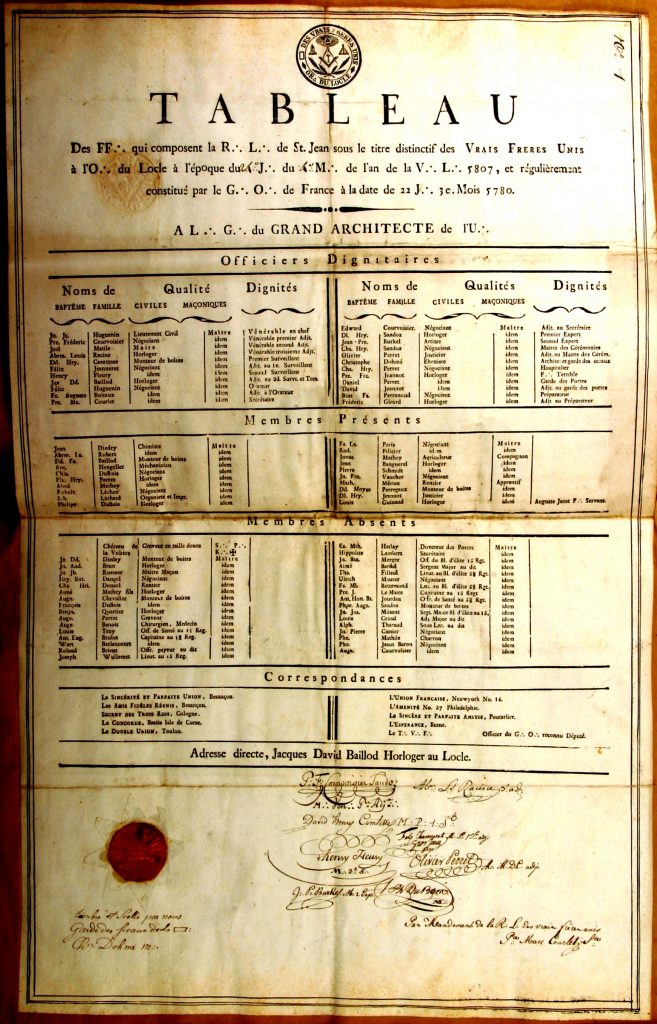 DES VRAIS FRERES UNIS
OR∴ DU LOCLE
TABLEAU
Des FF∴ qui composent la R∴ L∴ de St. Jean sous le titre distinctif des VRAIS FRERES UNIS
à l'O∴ du Locle à l'époque du J∴ du M∴ de l'an de la V∴ L∴ 5807, et régulièrement
constitué par le G∴ O∴ de France à la date de 22 J∴ 3e. Mois 5780.
A L∴ G∴ du GRAND ARCHITECTE de l'U∴
Officiers Dignitaires
Noms de Qualité Dignités
BAPTÊME FAMILLE CIVILES MAÇONIQUES
Jn. Js. Huguenin Lieutenant Civil Maître Vénérable en chef
Ps. Fréderic Courvoisier Négociant idem Vénérable premier Adjt.
Joel Matile Maire idem Vénérable second Adjt.
Abrm. Louis Racine Horloger idem Vénérable troisieme Adjt.
Dd. Hry. Comtesse Monteur de boites idem Premier Surveillant
Félix Jeanneret Négociant idem Adjt. au 1r. Surveillant
Henry Fleury idem idem Second Surveillant
Jqs Dd. Baillod Horloger idem Adjt. au 2d. Survt. et Tres.
Félix Huguenin Négociant idem Orateur
Fc. Auguste Boiteux idem idem Adjt. à l'Orateur
Pre. Mc. Courlet idem idem Secrétaire
Noms de Qualités Dignités
BAPTÊME FAMILLE CIVILES MAÇONIQUES
Edward Courvoisier. Négociant idem Adjt. au Secrétaire
Dl. Hry. Sandoz Horloger idem Premier Expert
Jean-Pre. Burkel Artiste idem Second Expert
Chs. Hry. Sandoz Négociant idem Maitre des Cérémonies
Olivier Perret Justicier idem Adjt. au Maitre des Cérém.
Christophe Dohmé Ebeniste idem Architect garde des sceaux
Chs. Hry. Perret Négociant idem Hospitalier
Pre. Frs. Jeannot idem idem F∴ Terrible
Daniel Perret idem idem Garde des Portes
David Jeannot idem idem Adjt. au garde des portes
Bént Fs. Perrenoud Négociant idem Préparateur
Fréderic Girard Horloger idem Adjt au Préparateur
Membres Présents
Jean Diedey Chimiste Maître
Abrm. Ls. Robert idem idem
Dd. Fs. Baillod Monteur de boites idem
Ant. Hengeller Méchanicien idem
Chls. DuBois Négociant idem
Fis. Hry. Perret Horloger idem
Aimé Mathey idem idem
Robert Léchot Négociant idem
S.h. Lathard Organiste et Impr. idem
Philipe DuBois Horloger idem
Fs. Ls. Paris Négociant Maître
Rod. Pélizier idem idem
Jonas Mathey Agriculteur Compagnon
Jean Banguerel Horloger idem
Pierre Schmidt idem idem
Ps. Frs. Vauchez Négociant idem
Math. Mérian Rentier Apprentif
Dd. Moyse Perregaux Monteur de boites idem
Dl. Hry. Jeannot Justicier idem
Louis Guinand Horloger idem Auguste Jacot F∴ Servant.
Membres Absents
Chéreau de la Vobère Graveur en taille douce S∴ P∴ R∴ ✠
Jn. Dd. Diedey Monteur de boites Maître
Js. Aud. Brun Horloger idem
Jn Jb. Ruesser Maitre Maçon idem
Jury. Bat. Dangel Négociant idem
Chs. Hri. Donzel Rentier idem
Aimé Mathey fils Horloger idem
Augs. Chevalier Monteur de boites idem
François DuBois idem idem
Benja. Quartier Horloger idem
Augs. Perret Graveur idem
Augs. Benoit Chirurgien, Médecin idem
Louis Troy Off. de Santé au 11 Reg. idem
Ant. Eug. Brulot Capitaine au 58 Reg. idem
Wart Berlancourt idem idem
Roland Brient Off. payeur au dit idem
Joseph Wuillemet Lieut. au 15 Reg. idem
Es. Mch. Harlay Directeur des Postes idem
Hippolite Lambert Secrétaire idem
Jn. Bta. Merger Off. du fil. d'élite 15 Rgt. idem
Aimé Bardel Sergent Major au dit idem
Ths. Filleul Lieut. au fil. d'élite 58 Rgt. idem
Ulrich Maurer Négociant idem
Fs. Ml. Bezermond Lnc. au fil. d'élite 58 Rgt. idem
Pre. J. Le Maire Capitaine au 15 Regt idem
Ant. Hon. Bt. Jourdan Offr. de Santé au 58 Rgt. idem
Phpe. Augs. Sandoz Monteur de boites idem
Jn. Jos. Minant Sergt. Major fil. d'élite au 15. idem
Louis Croza Adt. Major au dit idem
Alph. Tharaud Sous Lnt. au dit idem
Jn: Pierre Cusier Négociant idem
Phe. Mathile Charron idem
Phs. Jacot Baron Négociant idem
Augs. Courvoisier idem idem
Correspondances
LA SINCÉRITÉ ET PARFAITE UNION, Besançon.
LES AMIS FIDÈLES RÉUNIS, Besançon.
SECRET DES TROIS ROIS, Cologne.
LA CONCORDE, Bastia Isle de Corse.
LA DOUBLE UNION, Toulon.
L'UNION FRANCAISE, Neuwyork No. 14.
L'AMENITÉ No. 27 Philadelphie.
LA SINCÈRE ET PARFAITE AMITIE, Pontarlier.
L'ESPERANCE, Berne.
Le T∴ V∴ F∴ Officier du G∴ O∴ reconnu Député.
Adresse directe, Jacques David Baillod Horloger au Locle.
David Henry Comtesse
Henry Fleury
Olivier Perret
Timbré et Scellé par nous
Garde des sceaux de la
Chr. Dohmé
Par Mandement de la R. L. des vrais freres unis
Pre Marc Courlet